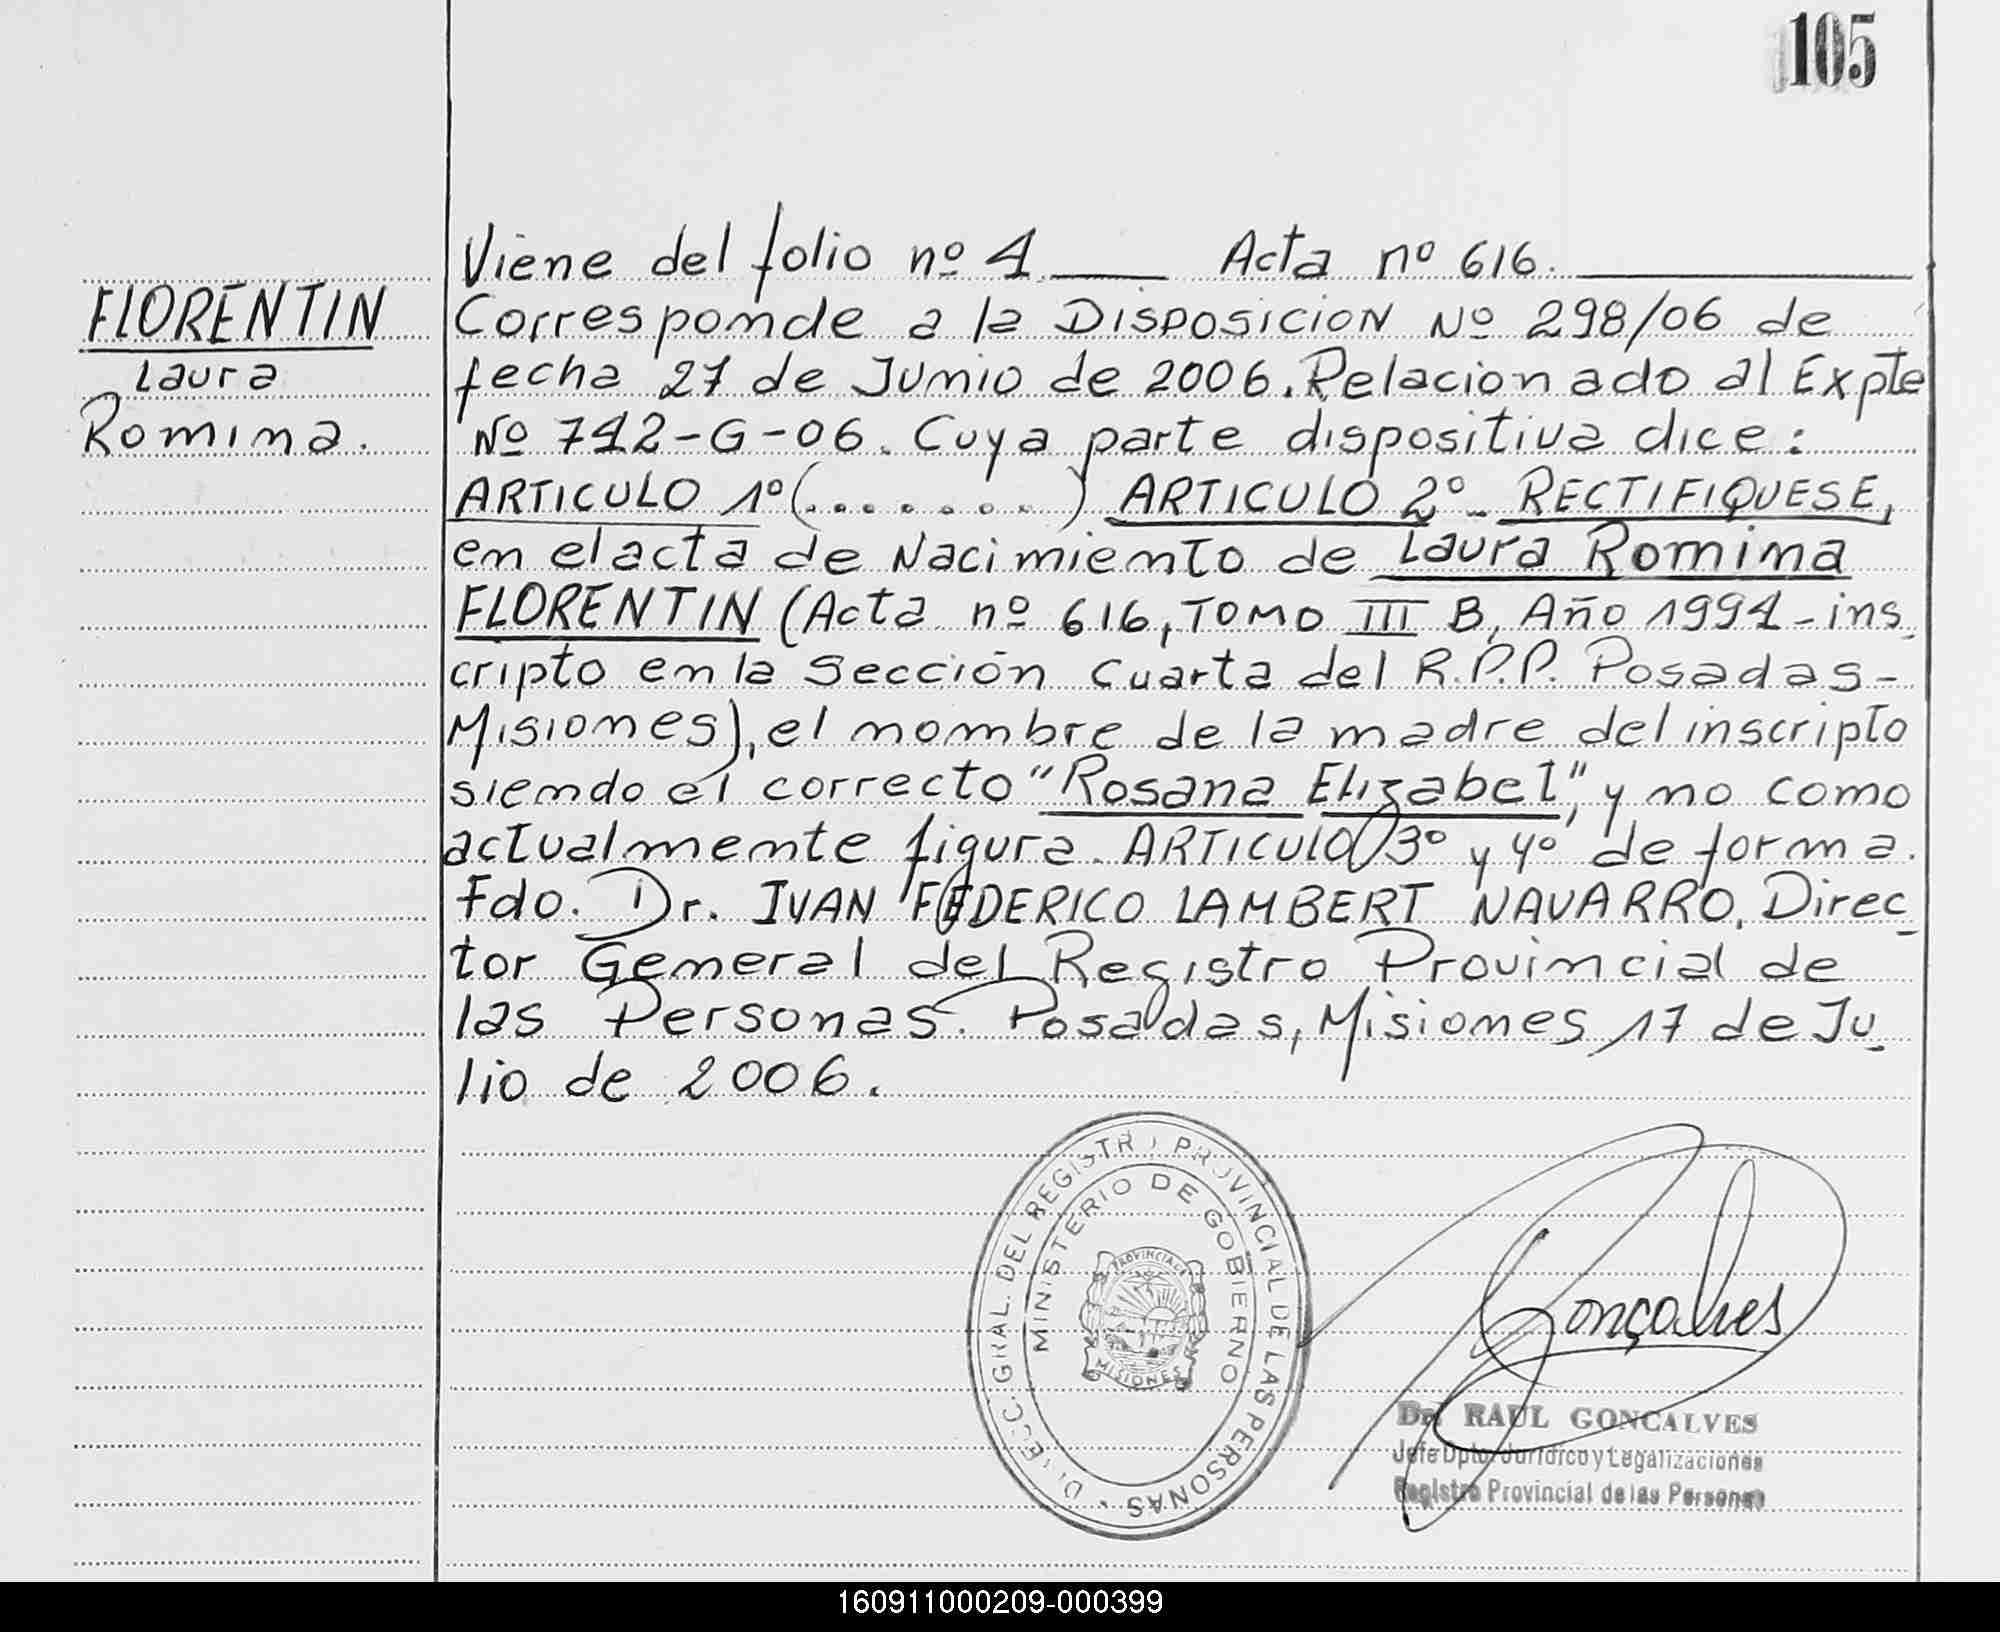 105
Viene del folio nº 1 Acta nº 616.
FLORENTIN
Laura
Romina.
Corresponde a la DISPOSICION Nº 298/06 de
fecha 27 de Junio de 2006. Relacionado al Expte
Nº 712-G-06. Cuya parte dispositiva dice:
ARTICULO 1º (.......) ARTICULO 2º- RECTIFIQUESE,
en el acta de Nacimiento de Laura Romina
FLORENTIN (Acta nº 616, TOMO III B, Año 1991-ins
cripto en la Sección Cuarta del R.P.P. Posadas-
Misiones), el nombre de la madre del inscripto
siendo el correcto "Rosana Elizabet", y no como
actualmente figura. ARTICULO 3º y 4º de forma.
Fdo. Dr. IVAN FEDERICO LAMBERT NAVARRO. Direc_
tor General del Registro Provincial de
las Personas. Posadas, Misiones 17 de Ju_
lio de 2006.
DIRECC. GRAL. DEL REGISTRO PROVINCIAL DE LAS PERSONAS
MINISTERIO DE GOBIERNO
PROVINCIA DE
MISIONES
Gonçalves
Dr. RAUL GONCALVES
Jefe Dpto. Jurídico y Legalizaciones
Registro Provincial de las Personas
160911000209-000399